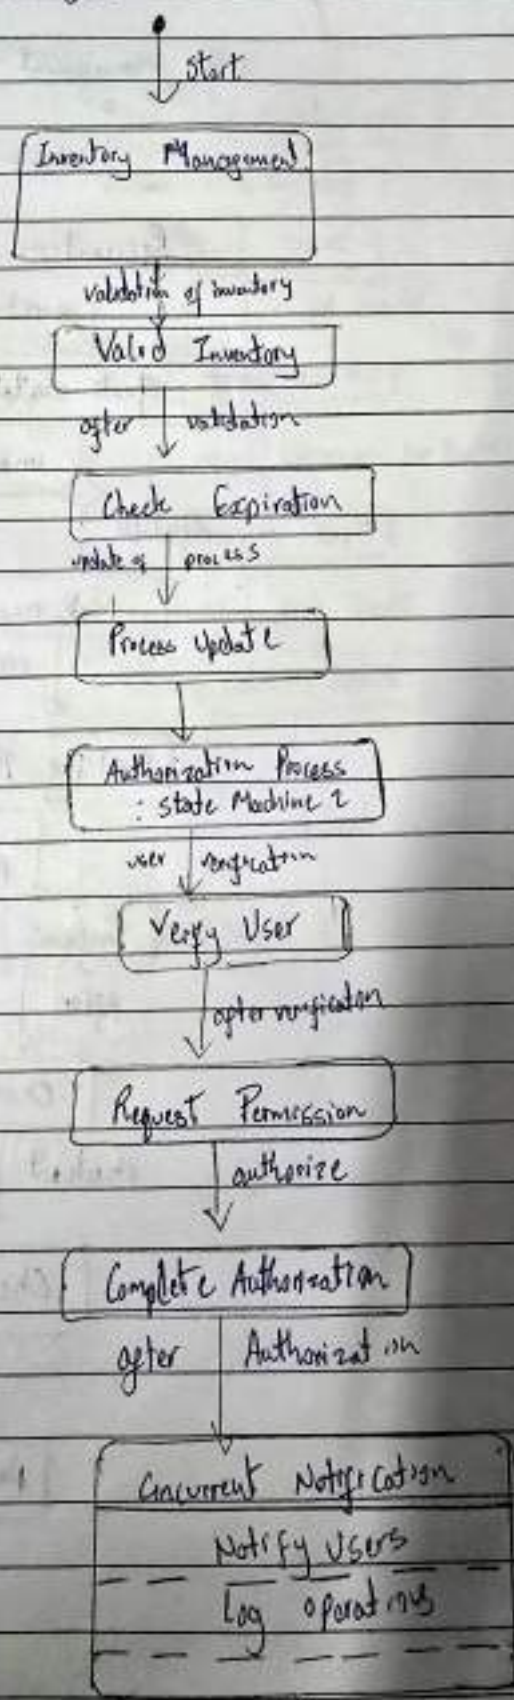 Start
Inventory Management
validation of inventory
Valid Inventory
after validation
Check Expiration
update of process
Process Update
Authorization Process
: State Machine 2
user verification
Verify User
after verification
Request Permission
authorize
Complete Authorization
after Authorization
Concurrent Notification
Notify Users
Log operations